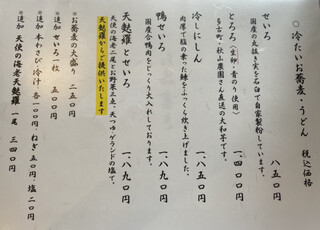 ◎ 冷たいお蕎麦・うどん 税込価格
せいろ 八五〇円
国産の丸抜き実を石臼で自家製粉しています。
とろろ（生卵・青のり使用） 一、四〇〇円
多古町・秋山農園さん直送の大和芋です。
冷しにしん 一、八五〇円
肉厚で脂の乗った鰊をふっくら炊き上げました。
鴨せいろ 一、八九〇円
国産合鴨肉をじっくり火入れしております。
天麩羅とせいろ 一、八九〇円
天使の海老二尾とお野菜三点。天つゆ・ゲランドの塩で。
天麩羅からご提供いたします
※お蕎麦の大盛り 二五〇円
※追加 せいろ一枚 五五〇円
※追加 本わさび・冷汁 各一〇〇円 ねぎ五〇円・塩二〇円
※追加 天使の海老天麩羅 一尾 三四〇円